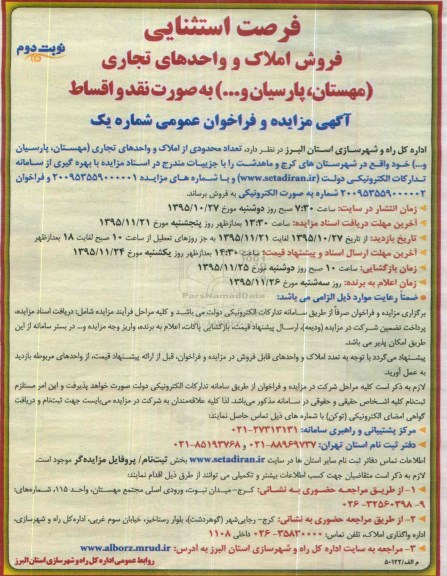 فرصت استثنایی
نوبت دوم
فروش املاک و واحدهای تجاری
(مهستان، پارسیان و...) به صورت نقد و اقساط
آگهی مزایده و فراخوان عمومی شماره یک
اداره کل راه و شهرسازی استان البرز در نظر دارد، تعداد محدودی از املاک و واحدهای تجاری (مهستان، پارسیان
و...) خود واقع در شهرستان های کرج و ماهدشت را با جزییات مندرج در اسناد مزایده با بهره گیری از سامانه
تدارکات الکترونیکی دولت (www.setadiran.ir) و با شماره های مزایده ۲۰۰۹۵۳۵۵۹۰۰۰۰۰۱ و فراخوان
۲۰۰۹۵۳۵۵۹۰۰۰۰۰۲ شماره به صورت الکترونیکی به فروش برساند.
زمان انتشار در سایت: ساعت ۷:۳۰ صبح روز دوشنبه مورخ ۱۳۹۵/۱۰/۲۷
آخرین مهلت دریافت اسناد مزایده: ساعت ۱۳:۳۰ بعدازظهر روز پنجشنبه مورخ ۱۳۹۵/۱۱/۲۱
تاریخ بازدید: از تاریخ ۱۳۹۵/۱۰/۲۷ لغایت ۱۳۹۵/۱۱/۲۱ به جز روزهای تعطیل از ساعت ۱۰ صبح لغایت ۱۸ بعدازظهر
آخرین مهلت ارسال اسناد و پیشنهاد قیمت: ساعت ۱۴:۳۰ بعدازظهر روز یکشنبه مورخ ۱۳۹۵/۱۱/۲۴
زمان بازگشایی: ساعت ۱۰ صبح روز دوشنبه مورخ ۱۳۹۵/۱۱/۲۵
زمان اعلام به برنده: روز سه‌شنبه مورخ ۱۳۹۵/۱۱/۲۶
ضمناً رعایت موارد ذیل الزامی می باشد:
برگزاری مزایده و فراخوان صرفاً از طریق سامانه تدارکات الکترونیکی دولت می باشد و کلیه مراحل فرآیند مزایده شامل: دریافت اسناد مزایده،
پرداخت تضمین شرکت در مزایده (ودیعه)، ارسال پیشنهاد قیمت، بازگشایی پاکات، اعلام به برنده، واریز وجه مزایده و... در بستر سامانه از این
طریق امکان پذیر می باشد.
پیشنهاد می‌گردد با توجه به تعدد املاک و واحدهای قابل فروش در مزایده و فراخوان، قبل از ارائه پیشنهاد قیمت، از واحدهای مربوطه بازدید
به عمل آورید.
لازم به ذکر است کلیه مراحل شرکت در مزایده و فراخوان از طریق سامانه تدارکات الکترونیکی دولت صورت خواهد پذیرفت و این امر مستلزم
ثبت‌نام کلیه اشخاص حقیقی و حقوقی در سامانه مذکور می‌باشد. لذا کلیه علاقه‌مندان به شرکت در مزایده می‌بایست جهت ثبت‌نام و دریافت
گواهی امضای الکترونیکی (توکن) با شماره های ذیل تماس حاصل نمایند:
مرکز پشتیبانی و راهبری سامانه: ۲۷۳۱۳۱۳۱-۰۲۱
دفتر ثبت نام استان تهران: ۸۸۹۶۹۷۳۷-۰۲۱ و ۸۵۱۹۳۷۶۸-۰۲۱
اطلاعات تماس دفاتر ثبت نام سایر استان ها در سایت www.setadiran.ir بخش ثبت‌نام/ پروفایل مزایده‌گر موجود است.
لازم به ذکر است متقاضیان جهت کسب اطلاعات بیشتر و تکمیلی می توانند از طرق ذیل اقدام نمایند:
۱- از طریق مراجعه حضوری به نشانی: کرج- میدان نبوت، ورودی اصلی مجتمع مهستان، واحد ۱۱۵، شماره‌های:
۹-۳۲۵۶۰۳۹۸-۰۲۶
۲- از طریق مراجعه حضوری به نشانی: کرج- رجایی‌شهر (گوهردشت)، بلوار رستاخیز، خیابان سوم غربی، اداره‌کل راه و شهرسازی،
اداره واگذاری املاک، تلفن تماس: ۳۵۸۳۰۰۰۰-۰۲۶ داخلی ۱۱۰۸
۳- مراجعه به سایت اداره کل راه و شهرسازی استان البرز به آدرس: www.alborz.mrud.ir
روابط عمومی اداره کل راه و شهرسازی استان البرز
م الف/۵۰۱۲۲
ParsNamadData